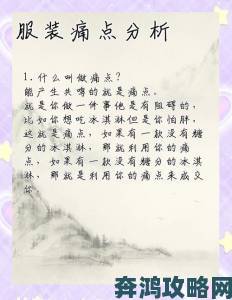 服装痛点分析
1.什么叫做痛点?
能产生共鸣的就是痛点。
就是你做一件事他是有阻碍的,
比如你想吃冰淇淋但是你怕胖,
这就是痛点,如果有一款没有糖
分的冰淇淋,那就利用你的痛
点,如果有一款没有糖分的冰淇
淋,那就是利用你的痛点来成交
你
奔鸿攻略网